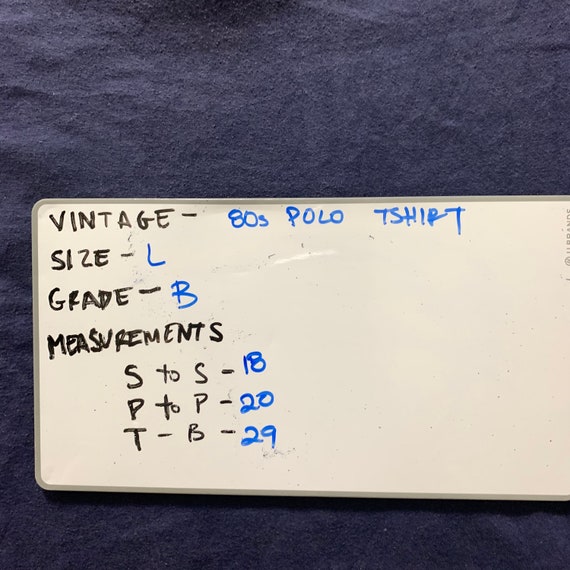 VINTAGE - 80s POLO TSHIRT
SIZE - L
GRADE - B
MEASUREMENTS
S to S - 18
P to P - 20
T - B - 29